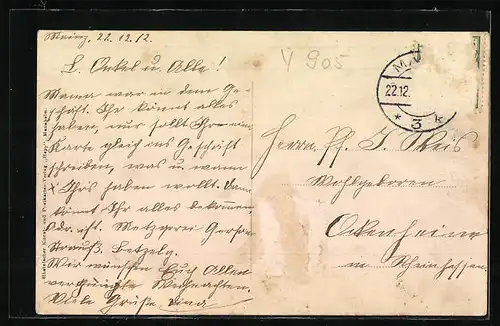 Mainz, 22.12.12.
L. Onkel u. Alle!
Mama war in dem Ge-
schäft. Ihr könnt alles
haben, nur sollt Ihr eine
Karte gleich ins Geschäft
schreiben, was u. wann
Ihrs haben wollt. Dann
könnt Ihr alles bekommen.
Adr. ist. Metzgerei Gerson
Strauß.
Wir wünschen Euch Allen
vergnügte Weihnachten.
Viele Grüße
V 905
22.12.
* 3 k
Herrn J. Weis
Wohlgeboren
Ockenheim
in Rheinhessen.